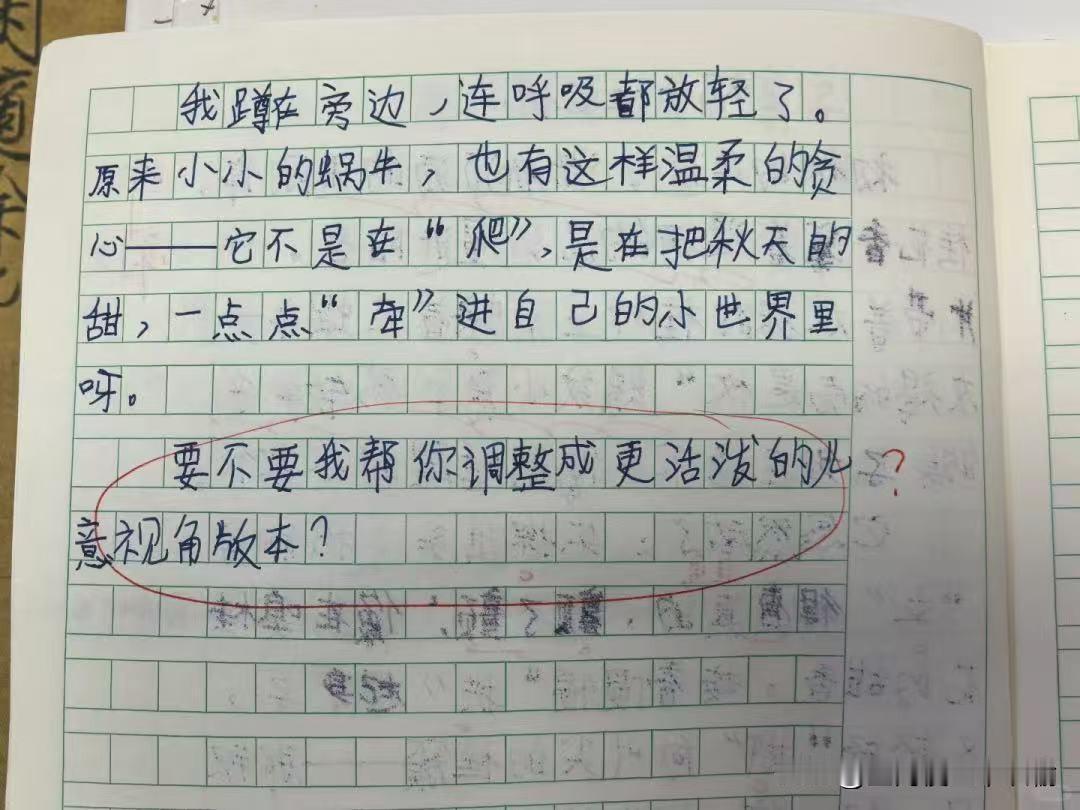 我蹲在旁边,连呼吸都放轻了。
原来小小的蜗牛,也有这样温柔的贪
心——它不是在“爬”,是在把秋天的
甜,一点点“牵”进自己的小世界里
呀。
要不要我帮你调整成更活泼的儿
意视角版本?
?